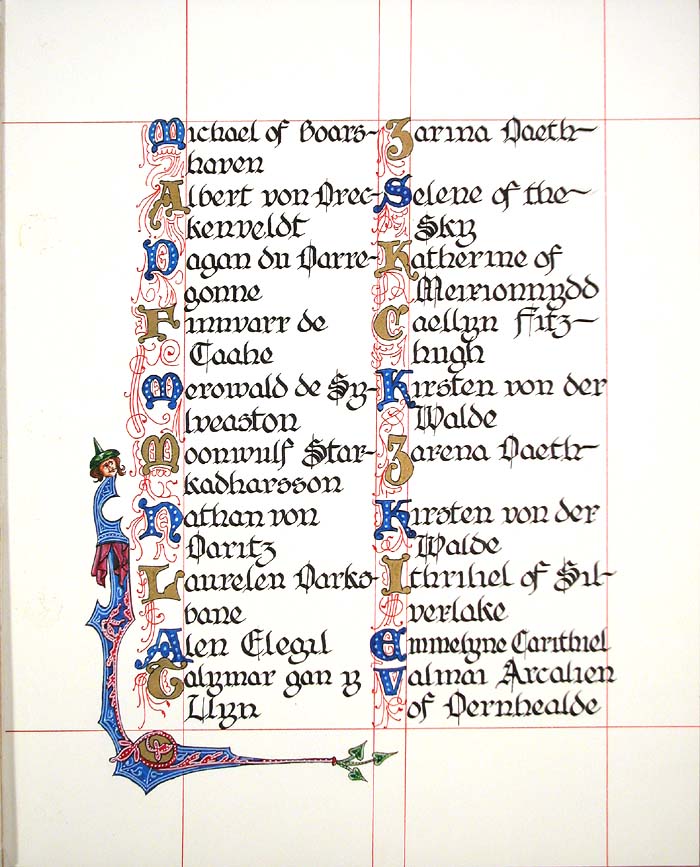 Michael of Boars-
haven
Albert von Drec-
kenveldt
Dagan du Darre-
gonne
Finnvarr de
Taahe
Merowald de Sy-
lveaston
Moonwulf Star-
kadharsson
Nathan von
Daritz
Laurelen Darks-
bane
Alen Elegil
Talymar gan y
Llyn
Zarina Daeth-
Selene of the-
Sky
Katherine of
Meirionnydd
Caellyn Fitz-
hugh
Kirsten von der
Walde
Zarena Daeth-
Kirsten von der
Walde
Ithriliel of Sil-
verlake
Emmelyne Carithiel
Valmai Arcalien
of Dernhealde